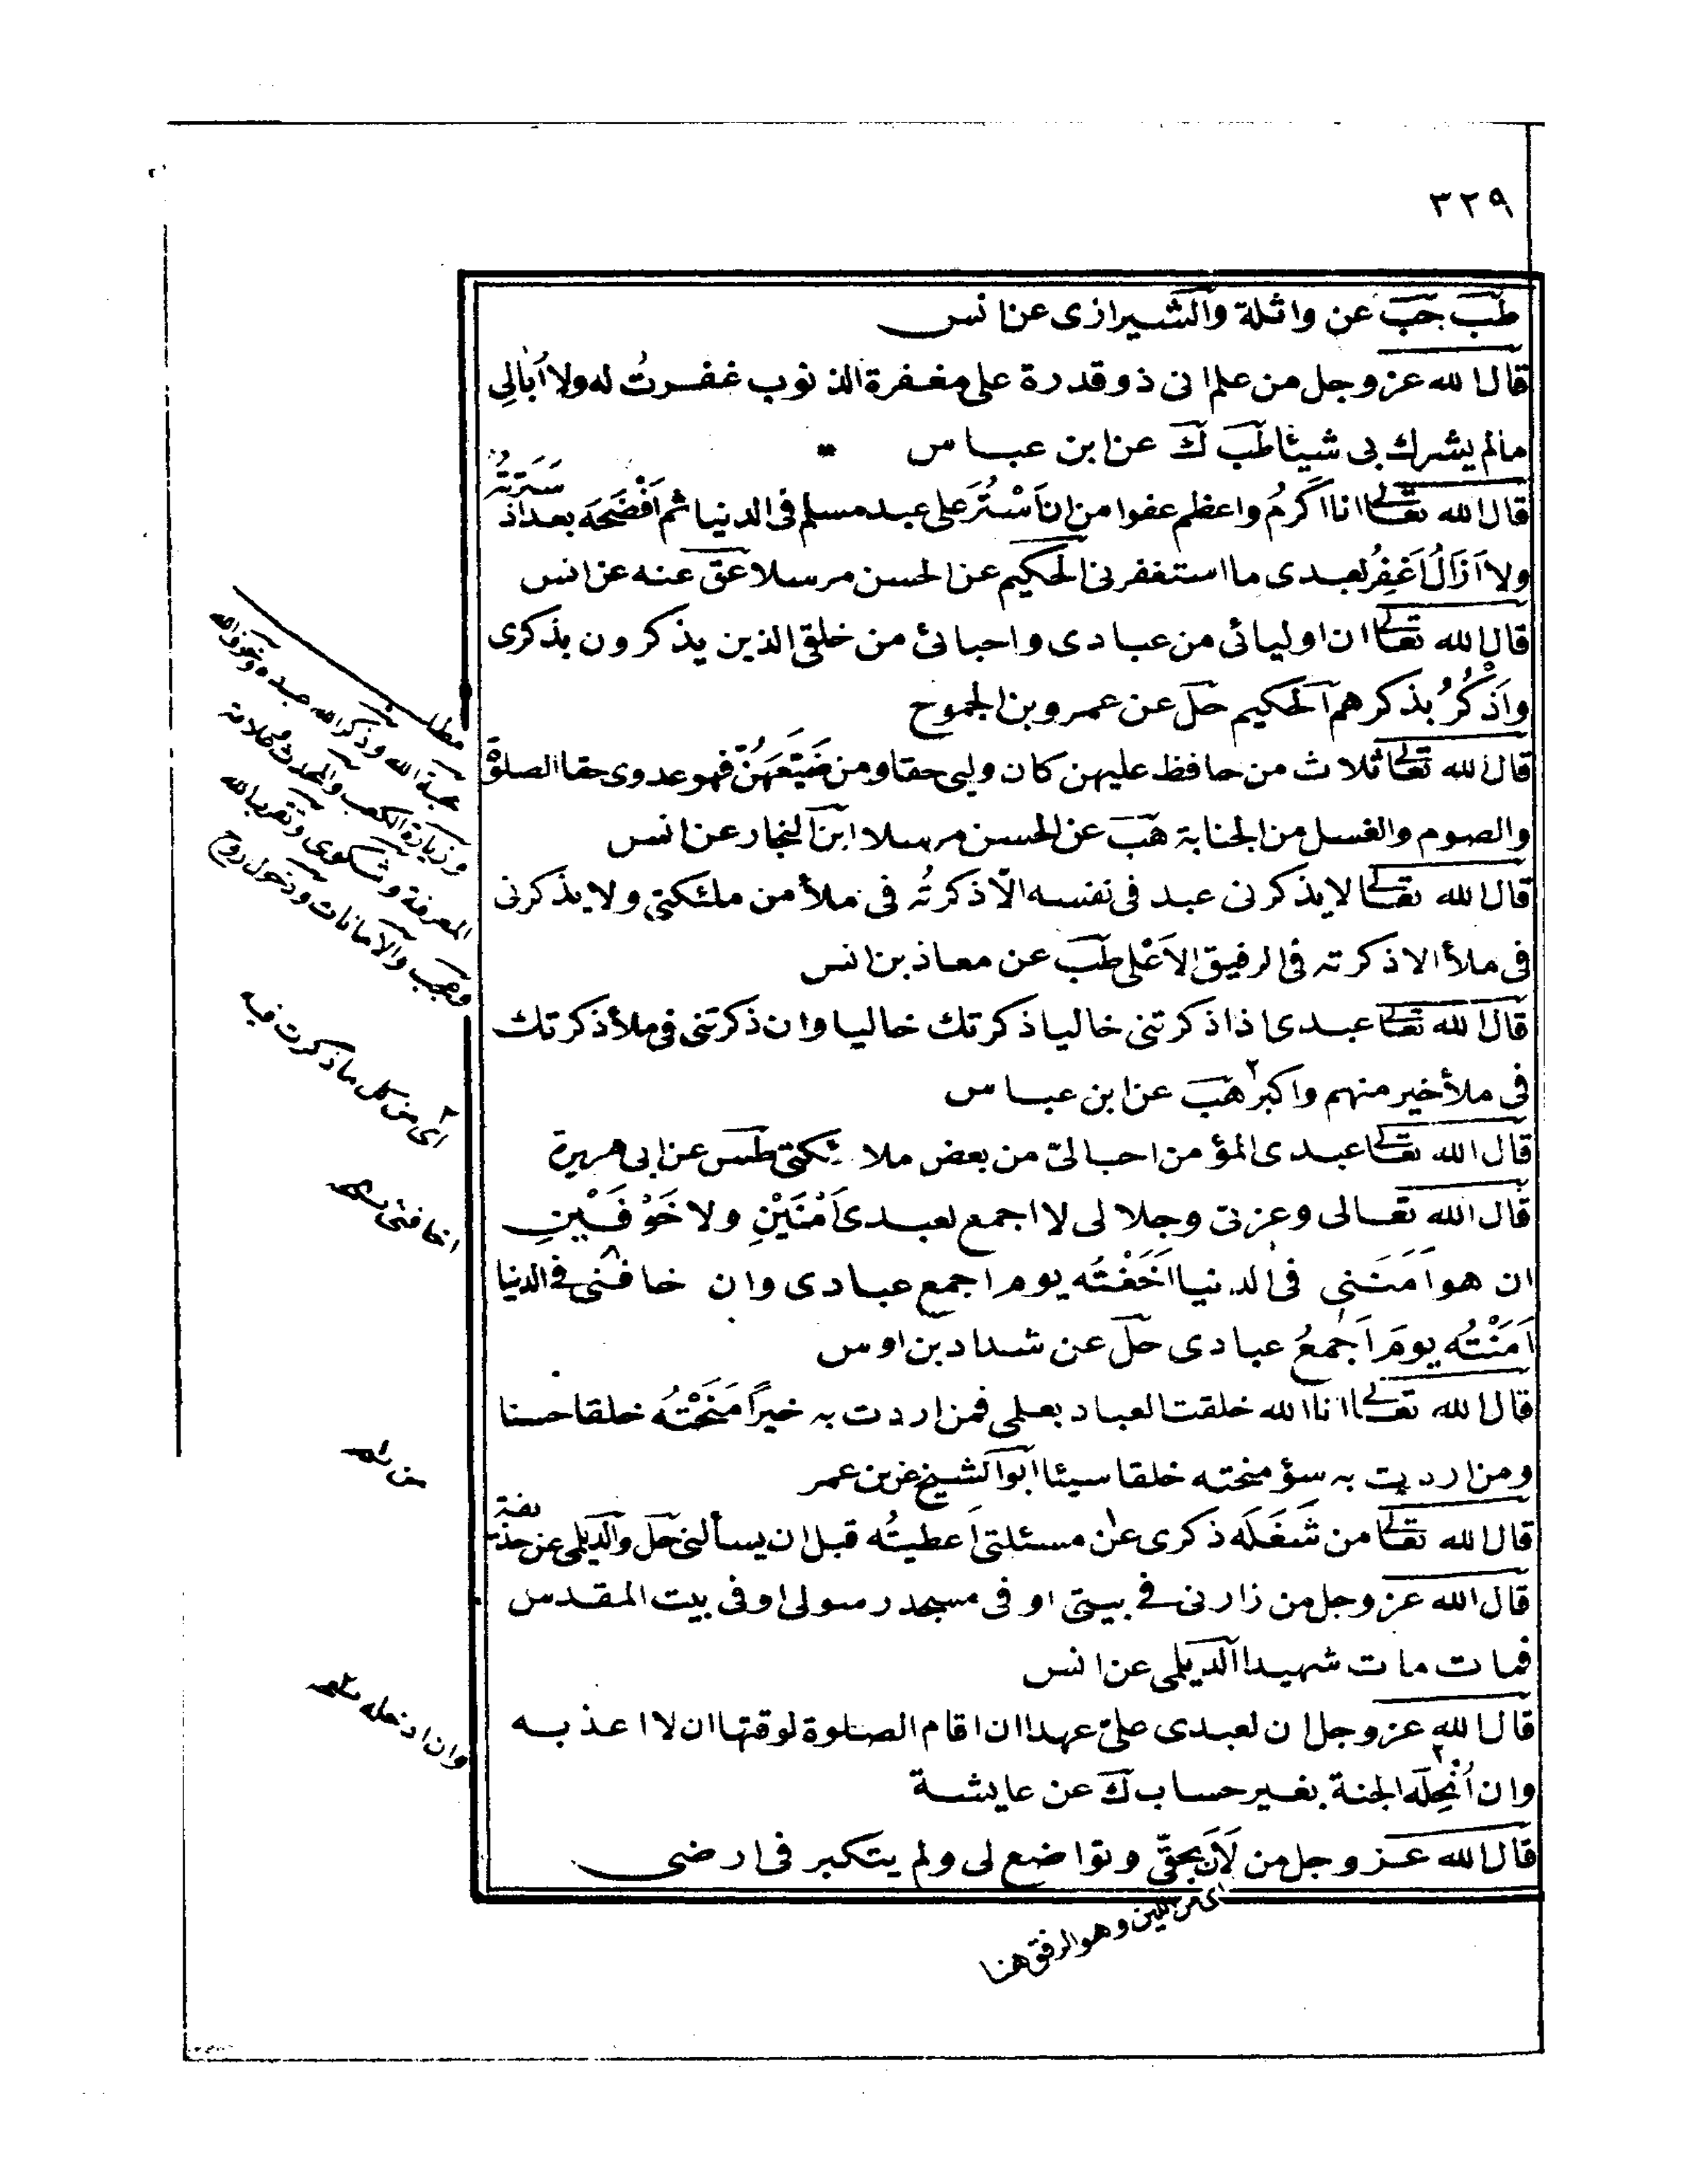 ٣٢٩
طب حب عن واثلة والشيرازى عن انس
قال الله عز وجل من علم انى ذو قدرة على مغفرة الذنوب غفرتُ له ولا اُبَالِى
مالم يشرك بى شيئا طب ك عن ابن عباس *
قال الله تعالى انا اكرمُ واعظم عفوا من ان اَسْتُرَ على عبد مسلم فى الدنيا ثم اَفْضَحَه بعد اذ سَتَرْتُه
ولا اَزَالُ اَغفِرُ لعبدى ما استغفرنى الحكيم عن الحسن مرسلا عق عنه عن انس
قال الله تعالى ان اوليائى من عبادى واحبائى من خلقى الذين يذكرون بذكرى
واَذْكُرُ بذكرهم الحكيم حل عن عمرو بن الجموح
قال الله تعالى ثلاث من حافظ عليهن كان وليى حقا ومن ضَيَّعَهُنّ فهو عدوى حقا الصلوة
والصوم والغسل من الجنابة هب عن الحسن مرسلا ابن النجار عن انس
قال الله تعالى لا يذكرنى عبد فى نفسه الّا ذكرتُه فى ملأ من ملئكتى ولا يذكرنى
فى ملأ الا ذكرته فى الرفيق الاَعْلى طب عن معاذ بن انس
قال الله تعالى عبدى اذا ذكرتنى خاليا ذكرتك خاليا وان ذكرتنى فى ملأ ذكرتك
فى ملأ خير منهم واكبر ٢ هب عن ابن عباس
قال الله تعالى عبدى المؤمن احب الىّ من بعض ملائكتى طس عن ابى هريرة
قال الله تعالى وعزتى وجلالى لا اجمع لعبدى اَمْنَيْنِ ولا خَوْفَيْنِ
ان هو اَمَنَنِى فى الدنيا اَخَفْتُه يوم اجمع عبادى وان خافنى فى الدنيا
اَمَنْتُه يومَ اَجْمعُ عبادى حل عن شداد بن اوس
قال الله تعالى انا الله خلقت العباد بعلمى فمن اردت به خيرًا مَنَحْتُه خلقا حسنا
ومن اردت به سؤ منحته خلقا سيئا ابو الشيخ عن بن عمر
قال الله تعالى من شَغَلَه ذكرى عن مسئلتى اَعطيتُه قبل ان يسألنى حل والديلمى عن حذيفة
قال الله عز وجل من زارنى فى بيتى او فى مسجد رسولى او فى بيت المقدس
فمات مات شهيدا الديلمى عن انس
قال الله عز وجل ان لعبدى علىّ عهدا ان اقام الصلوة لوقتها ان لا اعذبه
وان اُنْحِلَه ٢ الجنة بغير حساب ك عن عايشة
قال الله عز وجل من لَانَ بحقّى وتواضع لى ولم يتكبر فى ارضى
اى من اللين وهو الرفق هنا
محبة الله وذكر الله عبده وخوف الله
وزيارة الكعب
المعرفة وشكوى وتقرب الله
والامانات ودخول روح
٢ اى من كل ما ذكرت فيه
اخافنى نسخه
من نسخه
وان ادخله نسخه